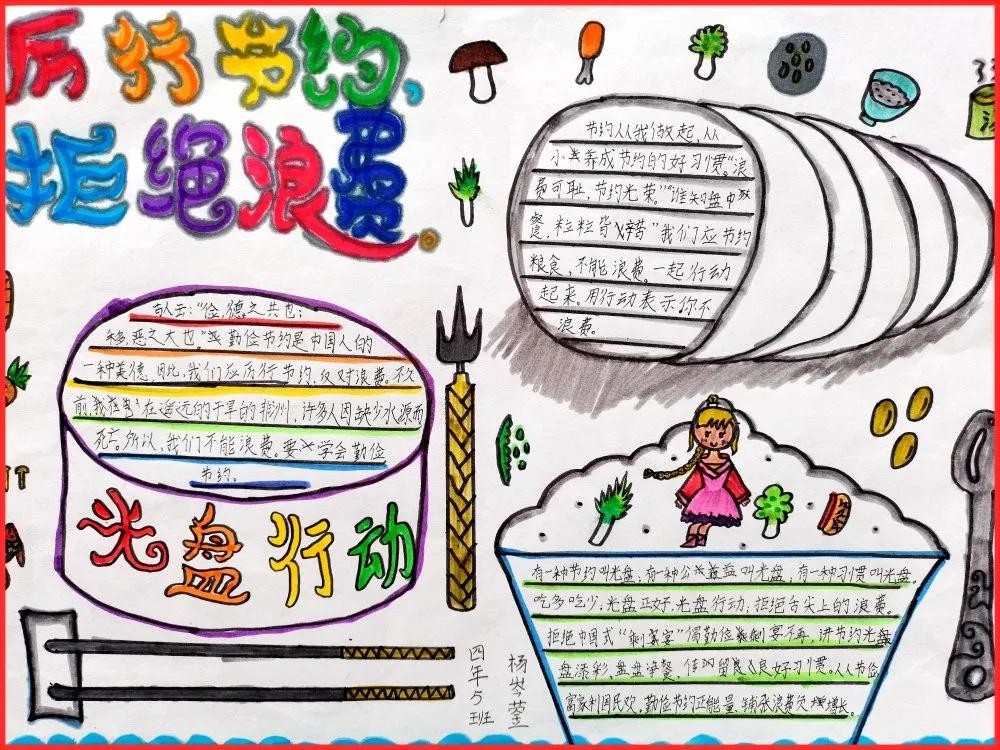 厉行节约，
拒绝浪费。
节约从我做起，从
小养成节约的好习惯。"浪
费可耻，节约光荣。""谁知盘中
餐，粒粒皆辛苦"我们应节约
粮食，不能浪费。一起行动
起来。用行动表示你不
浪费。
云："俭，德之共也；
侈，恶之大也。"勤俭节约是中国人的
一种美德，因此，我们应厉行节约，反对浪费。不久
前，我在在遥远的干旱的非洲，许多人因缺少水源而
死亡。所以，我们不能浪费。要学会勤俭
节约。
光盘行动
有一种节约叫光盘，有一种公益叫光盘，有一种习惯叫光盘。
吃多吃少，光盘正好，光盘行动，拒绝舌尖上的浪费。
拒绝中国式"剩宴"倡勤俭剩宴不再，讲节约光盘
盘添彩，盘盘净餐，良好习惯。人人节俭
富家利国民欢，勤俭节约正能量，铺张浪费负增长。
四年5班
杨岑荃